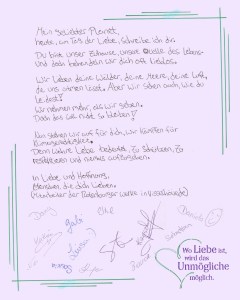 Mein geliebter Planet,
heute, am Tag der Liebe, schreibe ich dir.
Du bist unser Zuhause, unsere Quelle des Lebens-
und doch behandeln wir dich oft lieblos.
Wir lieben deine Wälder, deine Meere, deine Luft,
die uns atmen lässt. Aber wir sehen auch, wie du
leidest!
Wir nehmen mehr, als wir geben.
Doch das soll nicht so bleiben!
Nun stehen wir auf für dich, wir kämpfen für
Klimagerechtigkeit.
Denn wahre Liebe bedeutet, zu schützen, zu
respektieren und niemals aufzugeben.
In Liebe und Hoffnung,
Menschen, die dich lieben.
(Mitarbeiter der Rotenburger Werke in Visselhövede)
Wo Liebe ist,
wird das
Unmögliche
möglich.